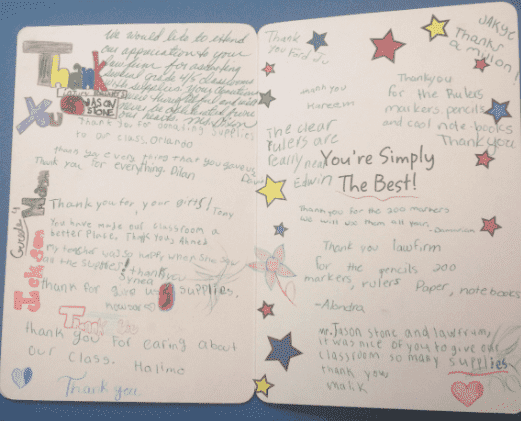 Thank
You
JASON
STONE
We would like to extend
our appreciation to your
lawfirm for
grade 4/5 classrooms
with supplies. Your donations
thoughtful and
our hearts.
Thank you for donating supplies
to our class, Orlando
thank you every thing that you gave us
Thank you for everything. Dilan
Thank you for your gifts! Tony
You have made our classroom a
better place. Thank you, Ahmed
My teacher was so happy when she saw
all the supplies! thank you
thank for give us supplies,
Thank You
thank you for caring about
our class. Halimo
Thank you
Grade 4
Jackson
Mann
Thank
you
thank you
Kareem
The clear
rulers are
really neat
Edwin
JAKYC
Thanks
a million!
Thankyou
for the Rulers
markers, pencils
and cool note-books
Thank you
You're Simply
The Best!
Thank you for the 200 markers
we will use them all
Thank you lawfirm
for the pencils 200
markers, rulers Paper, notebooks
-Alondra
mr. Jason stone and lawfirm,
it was nice of you to give our
classroom so many supplies
thank you
malik